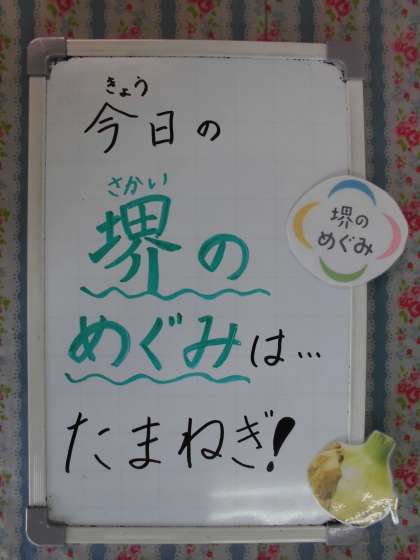 きょう
今日の
さかい
堺の
めぐみは…
たまねぎ!
堺の
めぐみ